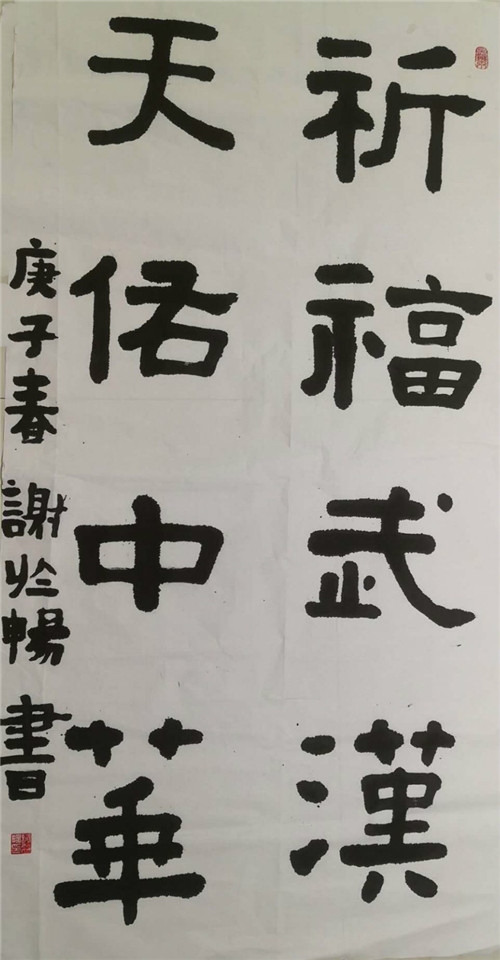 祈福武漢
天佑中華
庚子春 謝於暢書